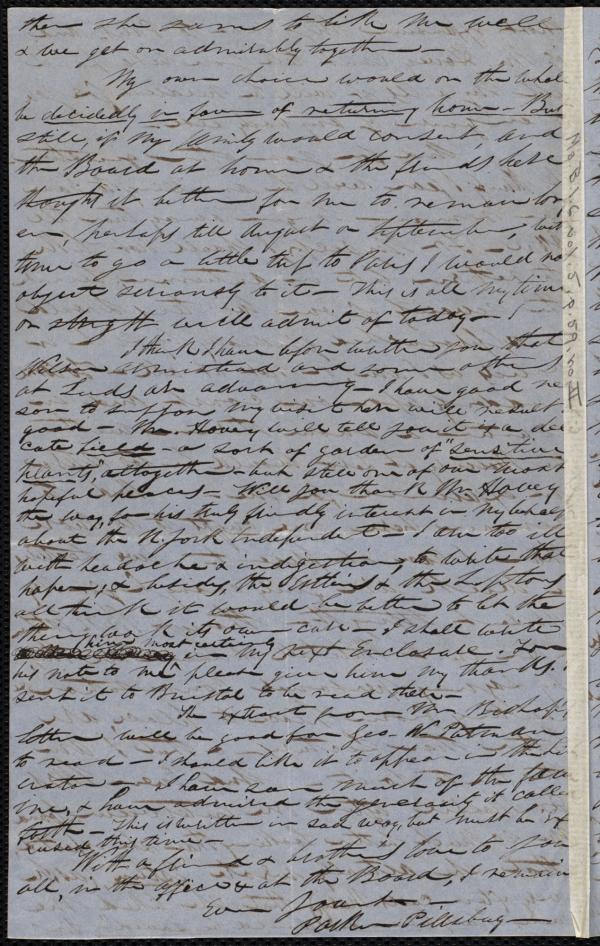 then she seems to like me well
& we get on admirably together —
My own choice would on the whole
be decidedly in favor of returning home — But
still, if my family would consent, and
the Board at home & the friends here
thought it better for me to remain long
er, perhaps till August or September, with
time to go a little trip to Paris I would no
object seriously to it — This is all my time
or strength will admit of today —
I think I have before written you that
Wilson Armistead and some others
at Leeds are advancing — I have good rea
son to suppose my visit here will result
good — Mr. Hovey will tell you it is a deli
cate field — a sort of garden of "sensitive
hearts", altogether — but still one of our most
hopeful places — Will you thank Mr Hovey
the way, for his truly friendly interest in my behalf
about the N. York Independent — I am too ill
with headache & indigestion, to write that
paper, & besides, the Estlins & the Luptons
all think it would be better to let the
thing work its own cure — I shall write
him most certainly in my next Enclosure. For
his note to me, please give him my thanks. I
sent it to Bristol to be read there —
The extract from Mr Bishop's
letter will be good for Geo. W Putnam
to read — I should like it to appear in the Lib
erator — I have seen much of the fam
ine, & have admired the generosity it called
forth — This is written in sad way, but must be ex
cused this time —
With a friend & brother's love to you
all, in the office & at the Board, I remain
Ever Yours —
Parker Pillsbury —
Ms. B. 1. 6 vol. 5, p. 59, no. II